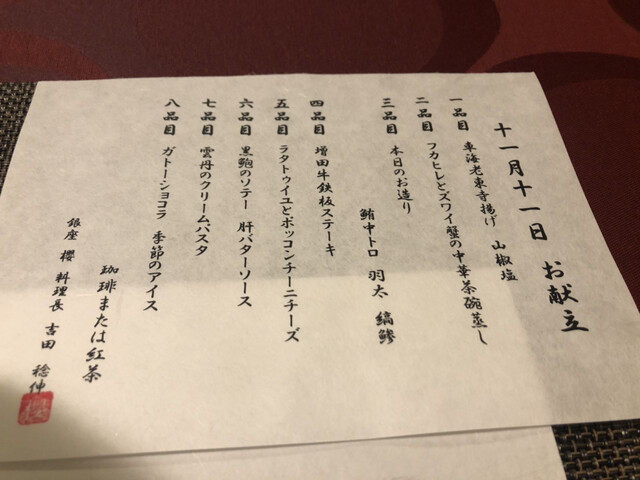 十一月十一日 お献立
一品目 車海老東寺揚げ 山椒塩
二品目 フカヒレとズワイ蟹の中華茶碗蒸し
三品目 本日のお造り
鮪中トロ 羽太 縞鯵
四品目 増田牛鉄板ステーキ
五品目 ラタトゥイユとボッコンチーニチーズ
六品目 黒鮑のソテー 肝バターソース
七品目 雲丹のクリームパスタ
八品目 ガトーショコラ 季節のアイス
珈琲または紅茶
銀座 櫻 料理長 吉田 稔伸